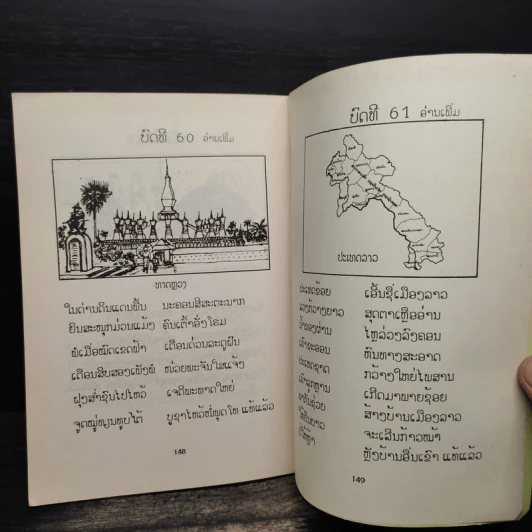 ບົດທີ 60 ອ່ານເພີ່ມ
ທາດຫຼວງ
ໃນດ່ານດິນແດນພື້ນ ນະຄອນສີສະຕະນາກ
ຍິນສະໜຸກມ່ວນແມ້ງ ຄືນເຕົ້າອັ່ງໂຮມ
ພໍເມື່ອໝົດເຂດຟ້າ ເດືອນດ່ວນລະດູຝົນ
ເດືອນສິບສອງເພັງພໍ ໜ່ວຍພະຈັນໃສແຈ້ງ
ຝຸງສ່ຳຊົນໄປໄຫວ້ ເຈດີພະທາດໃຫຍ່
ຈູດໝູ່ທຽນທູບໄຕ້ ບູຊາໄຫວ້ ແທ້ແລ້ວ
148
ບົດທີ 61 ອ່ານເພີ່ມ
ປະເທດລາວ
ປະເທດຂ້ອຍ ເອີ້ນຊື່ເມືອງລາວ
ກວ້າງຍາວ ສຸດຕາເຫຼືອອ່ານ
ຂອງຜ່ານ ໄຫຼລ່ວງລົງຄອນ
ຫົນທາງສະອາດ
ປະເທດຊາດ ກວ້າງໃຫຍ່ໄພສານ
ລູກຫຼານ ເກີດມາພາຍຊ້ອຍ
ຊ່ວຍ ສ້າງບ້ານເມືອງລາວ
ຈະເລີນກ້າວໜ້າ
ຫຼັງບ້ານອື່ນເຂົາ ແທ້ແລ້ວ
149